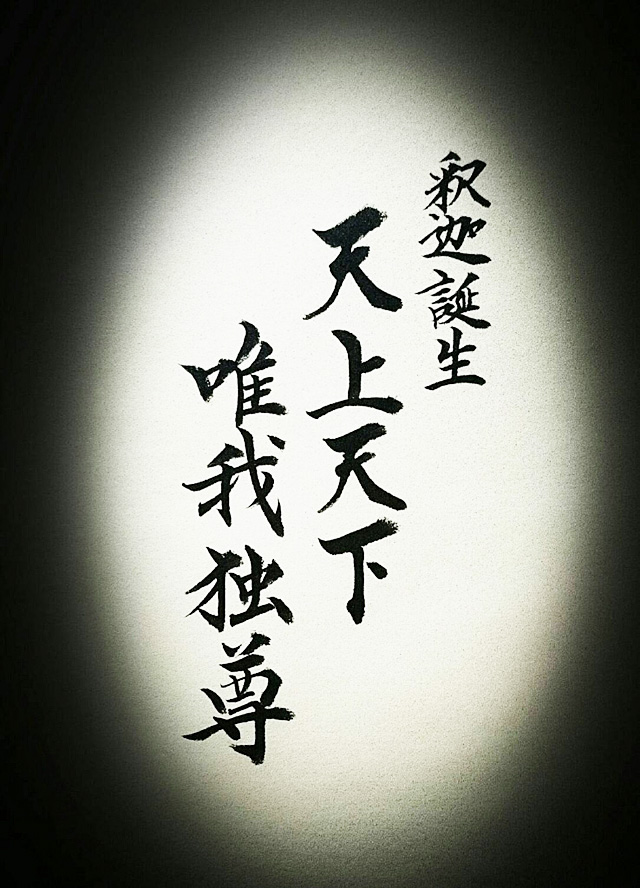 釈迦誕生
天上天下
唯我独尊